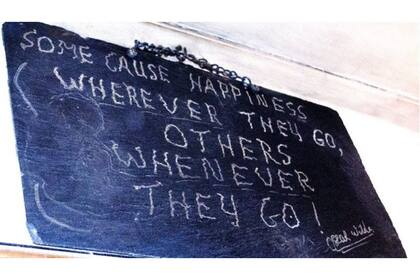 SOME CAUSE HAPPINESS
WHEREVER THEY GO,
OTHERS
WHENEVER
THEY GO!
Oscar Wilde